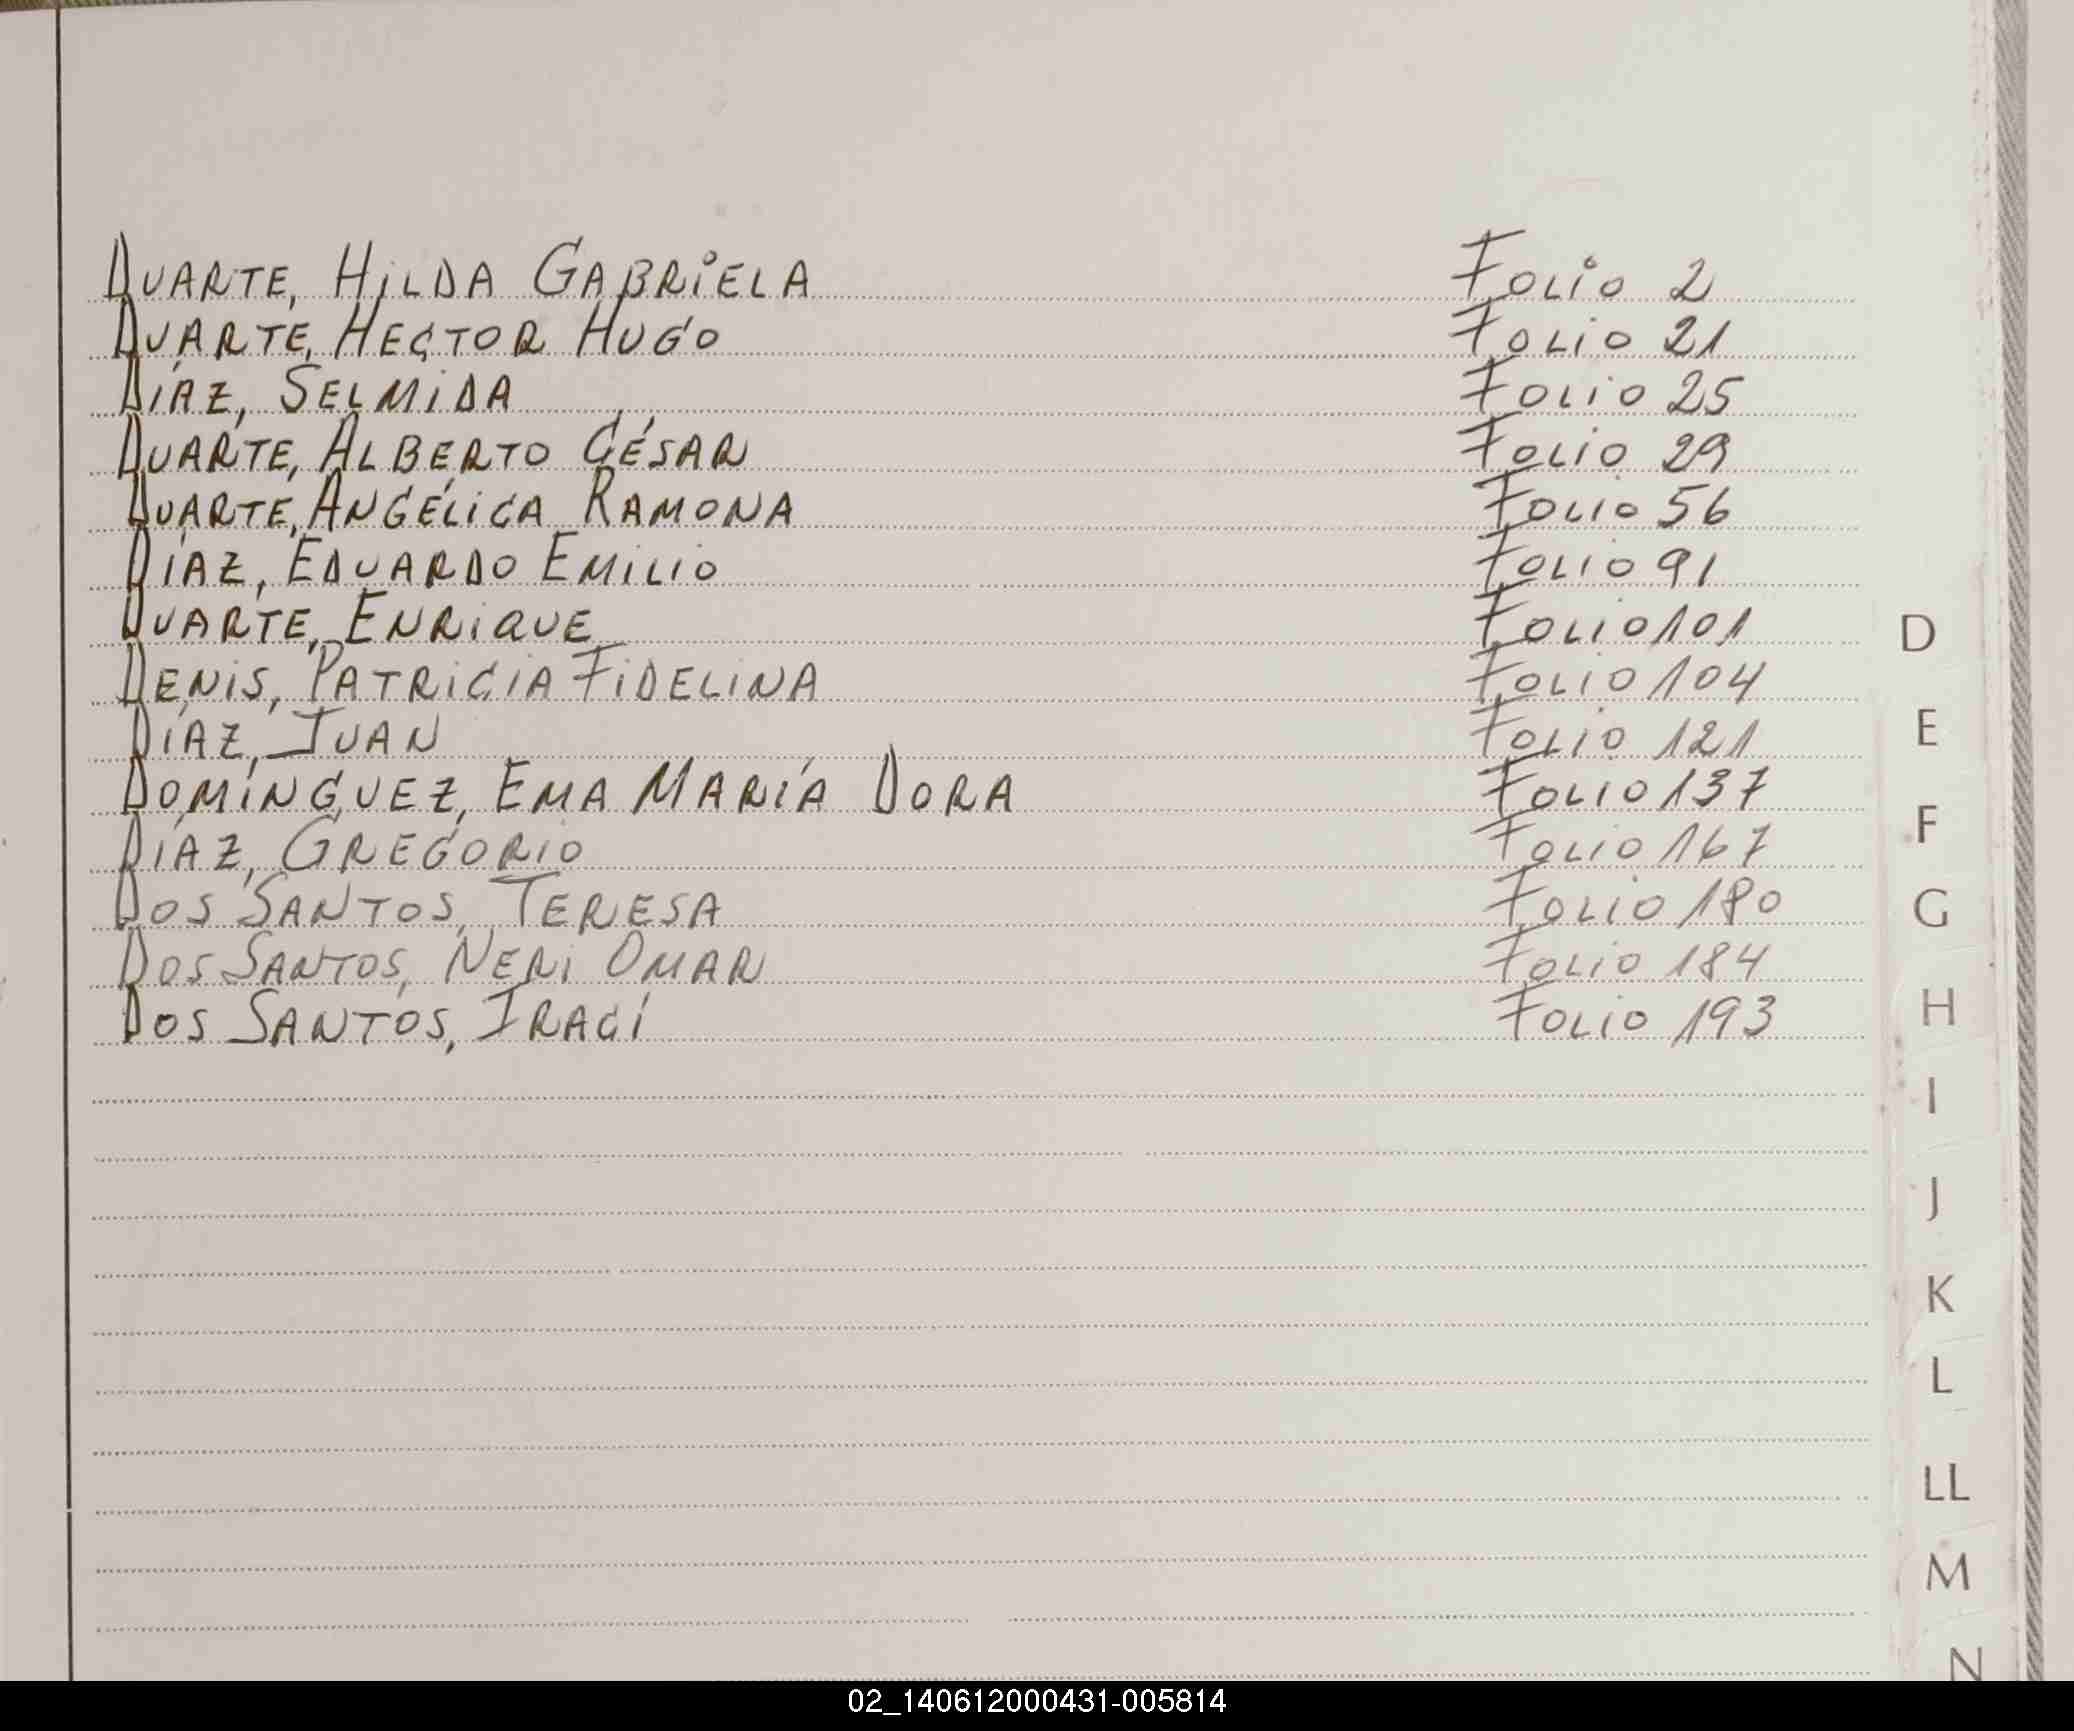 DUARTE, HILDA GABRIELA FOLIO 2
DUARTE, HECTOR HUGO FOLIO 21
DÍAZ, SELMIDA FOLIO 25
DUARTE, ALBERTO CÉSAR FOLIO 29
DUARTE, ANGÉLICA RAMONA FOLIO 56
DÍAZ, EDUARDO EMILIO FOLIO 91
DUARTE, ENRIQUE FOLIO 101
DENIS, PATRICIA FIDELINA FOLIO 104
DÍAZ, JUAN FOLIO 121
DOMÍNGUEZ, EMA MARÍA DORA FOLIO 137
DÍAZ, GREGORIO FOLIO 167
DOS SANTOS, TERESA FOLIO 180
DOS SANTOS, NERI OMAR FOLIO 184
DOS SANTOS, IRACÍ FOLIO 193
D
E
F
G
H
I
J
K
L
LL
M
N
02_140612000431-005814